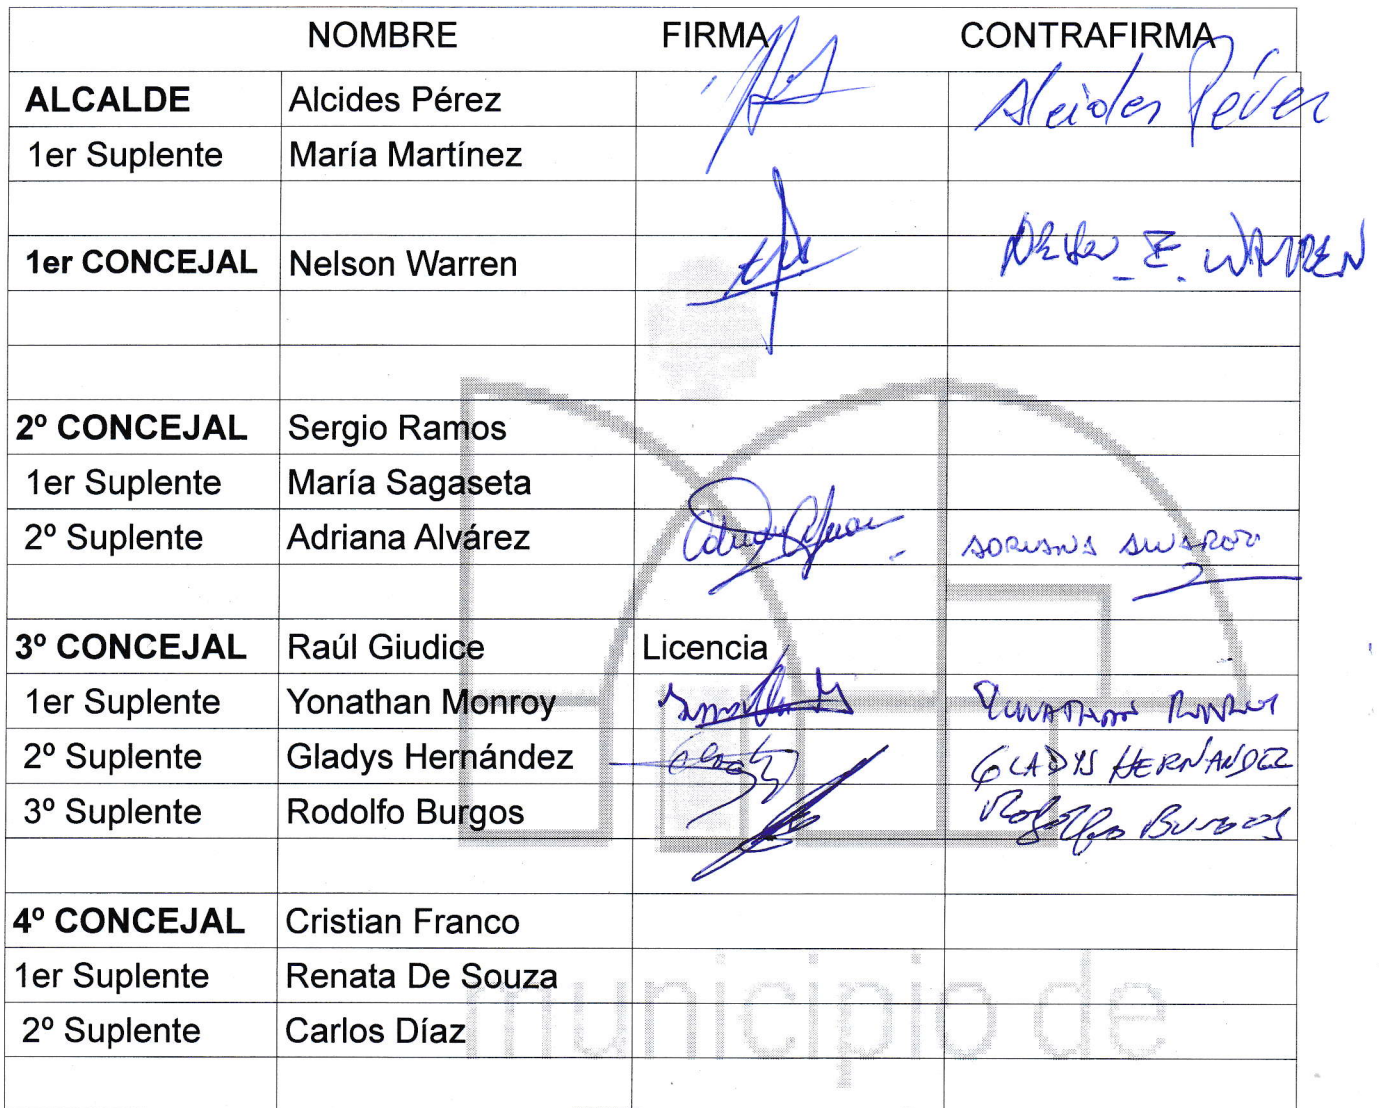 NOMBRE FIRMA CONTRAFIRMA
ALCALDE Alcides Pérez Alcides Pérez
1er Suplente María Martínez
1er CONCEJAL Nelson Warren Nelson E. WARREN
2º CONCEJAL Sergio Ramos
1er Suplente María Sagaseta
2º Suplente Adriana Alvárez ADRIANA ALVAREZ
3º CONCEJAL Raúl Giudice Licencia
1er Suplente Yonathan Monroy
2º Suplente Gladys Hernández GLADYS HERNANDEZ
3º Suplente Rodolfo Burgos Rodolfo Burgos
4º CONCEJAL Cristian Franco
1er Suplente Renata De Souza
2º Suplente Carlos Díaz
municipio de